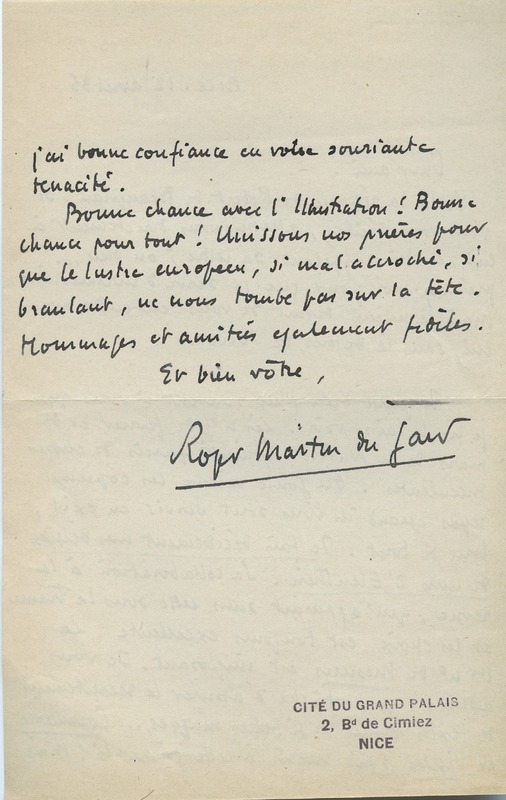 j'ai bonne confiance en votre souriante
tenacité.
Bonne chance avec l'Illustration ! Bonne
chance pour tout ! Unissons nos prières pour
que le lustre européen, si mal accroché, si
branlant, ne nous tombe pas sur la tête.
Hommages et amitiés également fidèles.
Et bien vôtre,
Roger Martin du Gard
CITÉ DU GRAND PALAIS
2, Bd de Cimiez
NICE